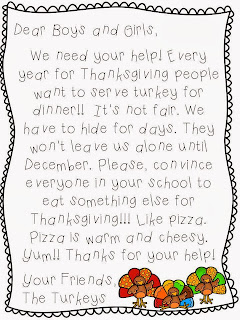 Dear Boys and Girls,
We need your help! Every
year for Thanksgiving people
want to serve turkey for
dinner!! It's not fair. We
have to hide for days. They
won't leave us alone until
December. Please, convince
everyone in your school to
eat something else for
Thanksgiving!!! Like pizza.
Pizza is warm and cheesy.
Yum!! Thanks for your help!
Your Friends,
The Turkeys